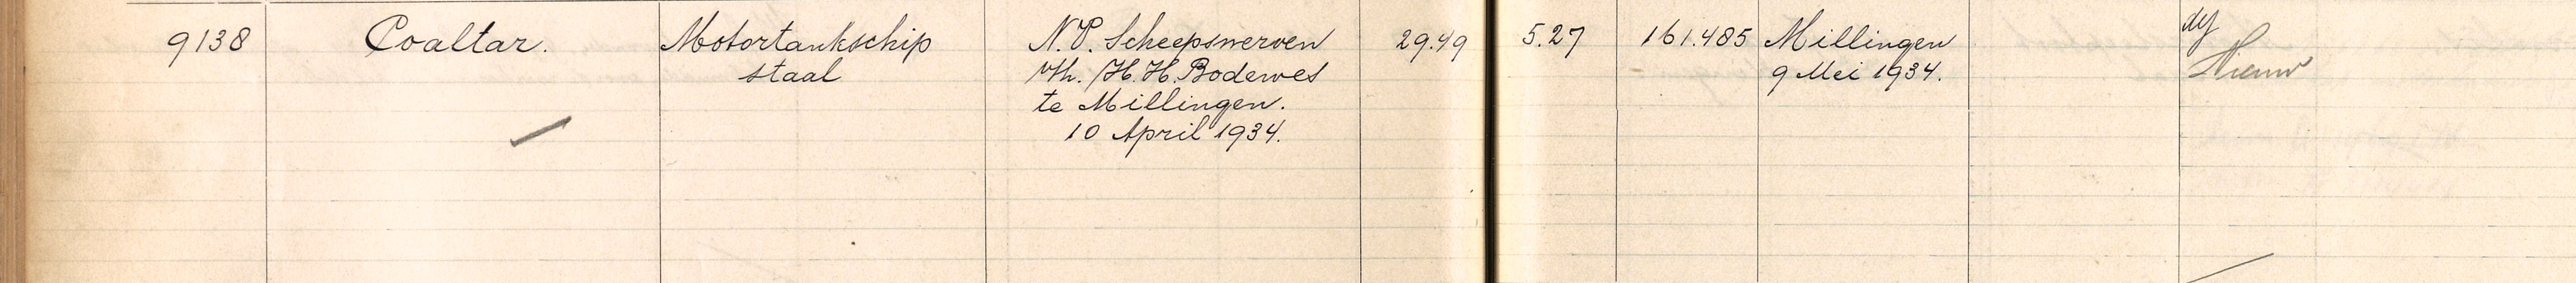 9138 Coaltar. Motortankschip N.V. Scheepswerven 29.49 5.27 161.485 Millingen
staal vh. H.H. Bodewes 9 Mei 1934. Nieuw
te Millingen.
10 April 1934.